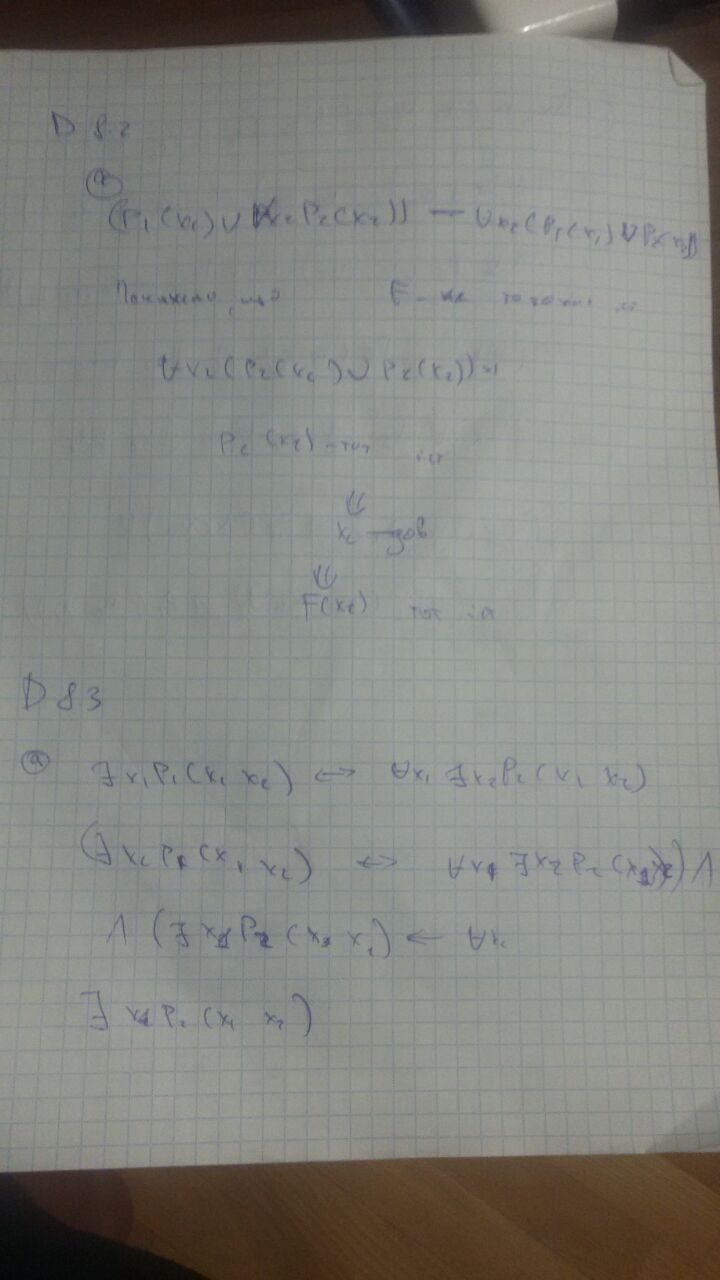 D 8.2
а
(P₁(x₂) ∪ ∀x₂ P₂(x₂)) — ∀x₂(P₁(x₁) ∪ P₂(x₂))
Покажемо, що F - не тотожн іст
∀x₂(P₂(x₂) ∪ P₂(x₂))=1
P₂(x₂) - тот іст
⇓
x₂ — дов
⇓
F(x₂) тот іст
D 8.3
а
∃x₁P₁(x₁ x₂) ↔ ∀x₁ ∃x₂P₂(x₁ x₂)
(∃x₂ P₁(x₁ x₂) ↔ ∀x₁ ∃x₂P₂(x₁x₂)) ∧
∧ (∃x₁P₂(x₂ x₁) ← ∀x₁
∃x₁P₂(x₁ x₂)